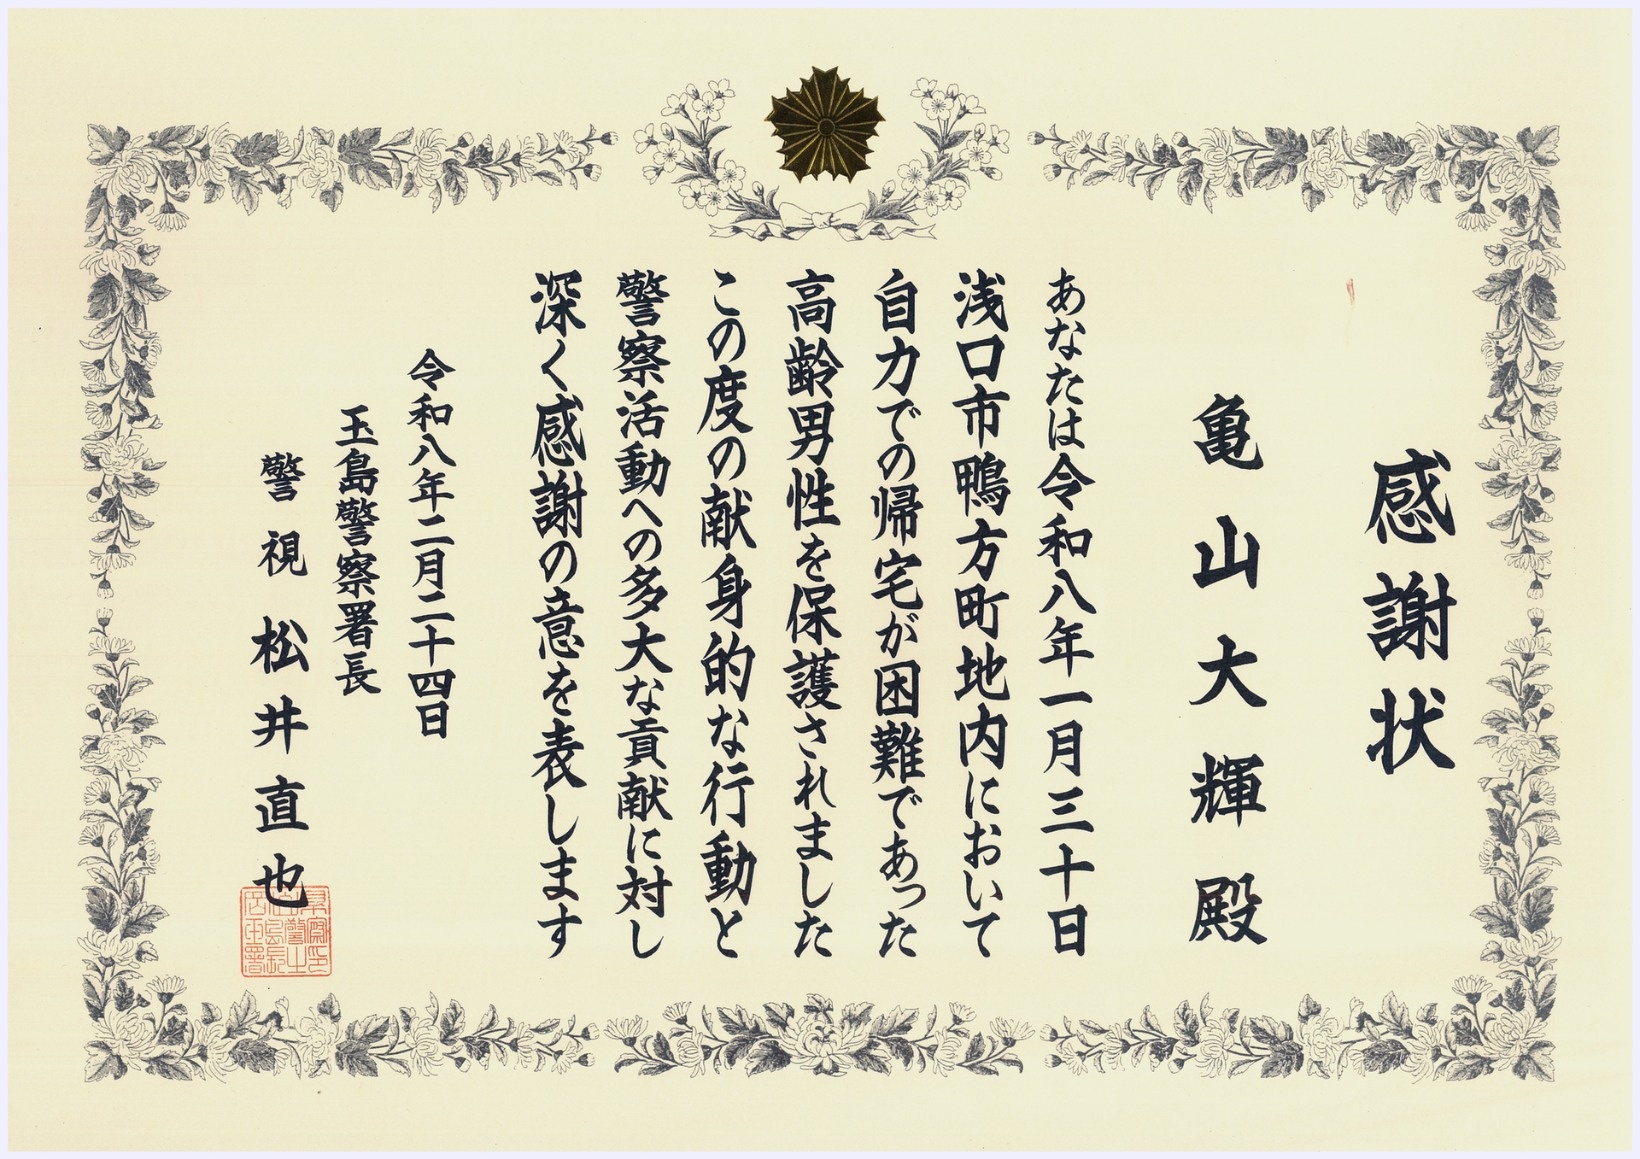 感謝状
亀山大輝殿
あなたは令和八年一月三十日
浅口市鴨方町地内において
自力での帰宅が困難であった
高齢男性を保護されました
この度の献身的な行動と
警察活動への多大な貢献に対し
深く感謝の意を表します
令和八年二月二十四日
玉島警察署長
警視 松井直也